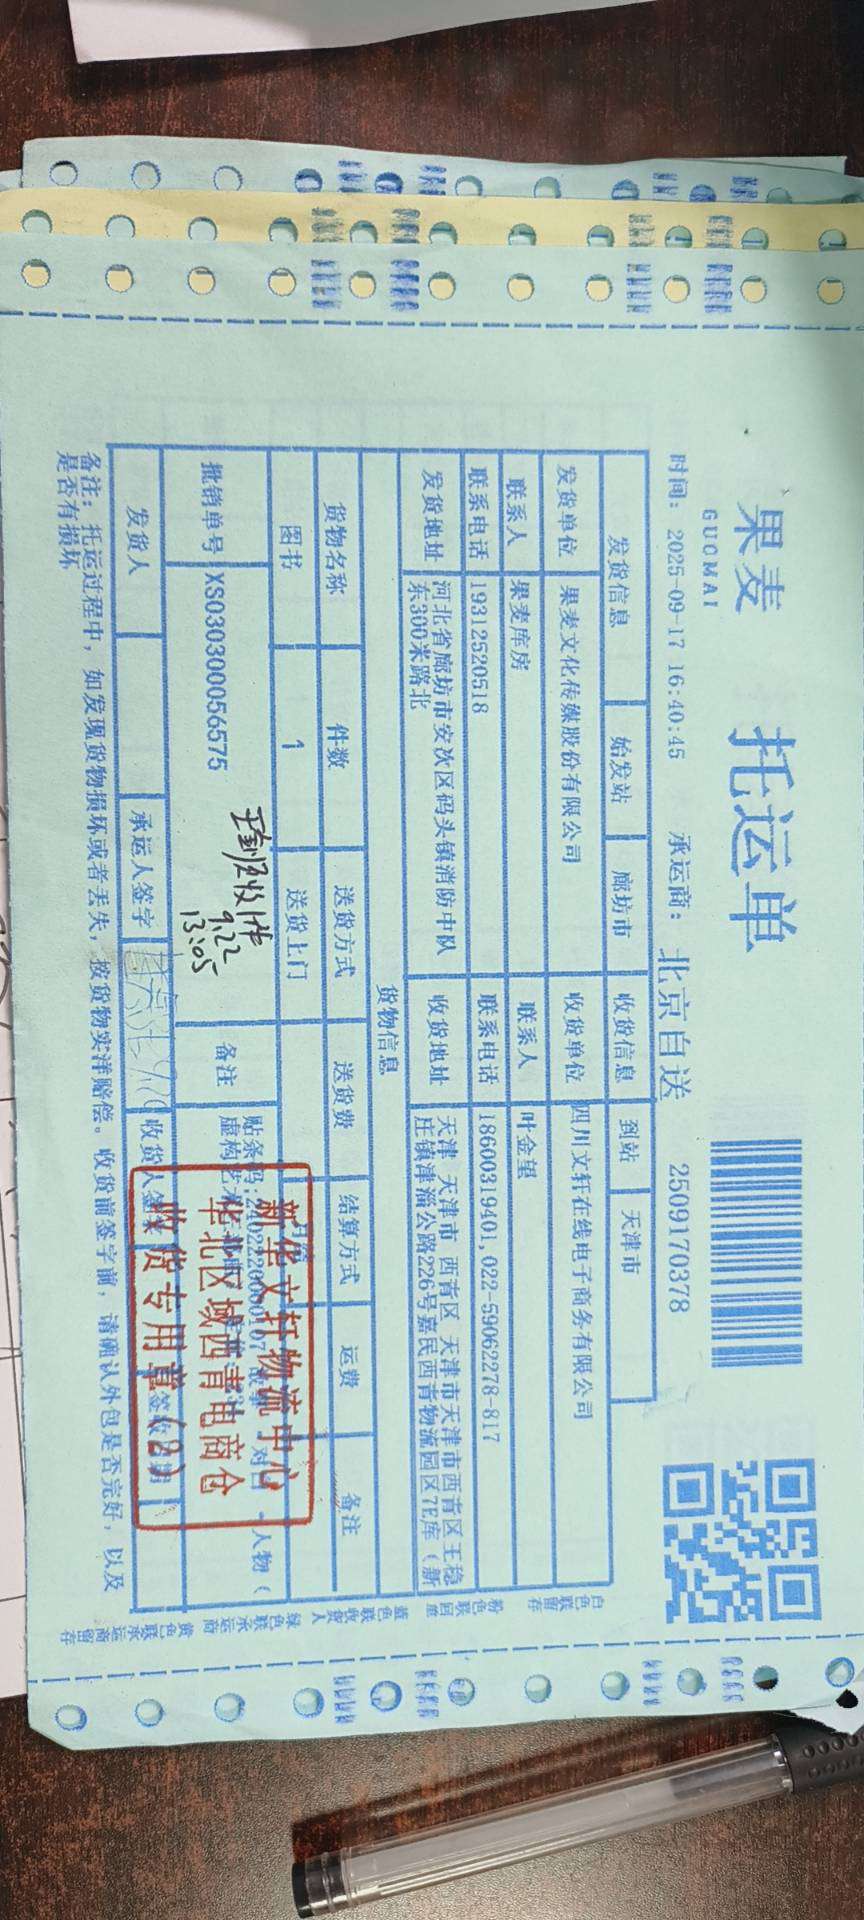 果麦
GUOMAI
托运单
时间: 2025-09-17 16:40:45 承运商: 北京自送 2509170378
发货信息 始发站 廊坊市 收货信息 到站 天津市
发货单位 果麦文化传媒股份有限公司 收货单位 四川文轩在线电子商务有限公司
联系人 果麦库房 联系人 叶金望
联系电话 19312520518 联系电话 18600319401,022-59062278-817
发货地址 河北省廊坊市安次区码头镇消防中队东300米路北 收货地址 天津 天津市 西青区 天津市天津市西青区王稳庄镇津淄公路226号嘉民西青物流园区7E库(新
货物信息
货物名称 件数 送货方式 送货费 结算方式 运费 备注
图书 1 送货上门
批销单号 XS030300056575 备注 贴条码:
人物(
虚构艺
收件
9.22
13:05
发货人 承运人签字 收货人签
新华文轩物流中心
华北区域西青电商仓
收货专用章(2)
备注: 托运过程中, 如发现货物损坏或者丢失, 按货物实洋赔偿。收货前签字前, 请确认外包是否完好, 以及
是否有损坏
白色联留存
粉色联回单
蓝色联收货人
绿色联承运商
黄色联承运商留存